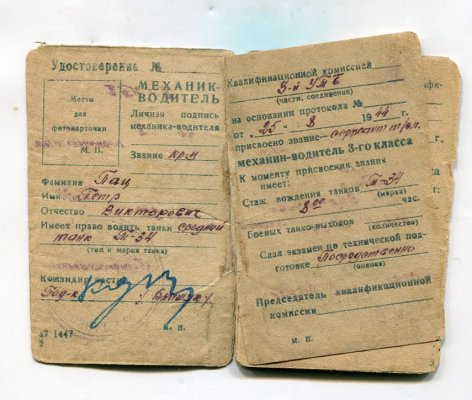 Удостоверение №
МЕХАНИК-
ВОДИТЕЛЬ
Место
для
фотокарточки
М. П.
Личная подпись
механика-водителя
Звание кр-ц
Фамилия Пац
Имя Петр
Отчество Викторович
Имеет право водить танки средний
танк Т-34
(тип и марка танка)
Командир части
Под-к
зт 1447
м. п.
Квалификационной комиссией
5-й УТБ
(части, соединения)
на основании протокола №
от " 25 " 8 1944 г.
присвоено звание
механик-водитель 3-го класса
К моменту присвоения звания
имеет:
Стаж вождения танков Т-34
(марка)
8 00 час.
Боевых танко-выходов
(количество)
Сдал экзамен по технической под-
готовке Посредственно
(оценка)
Председатель квалификационной
комиссии
м. п.